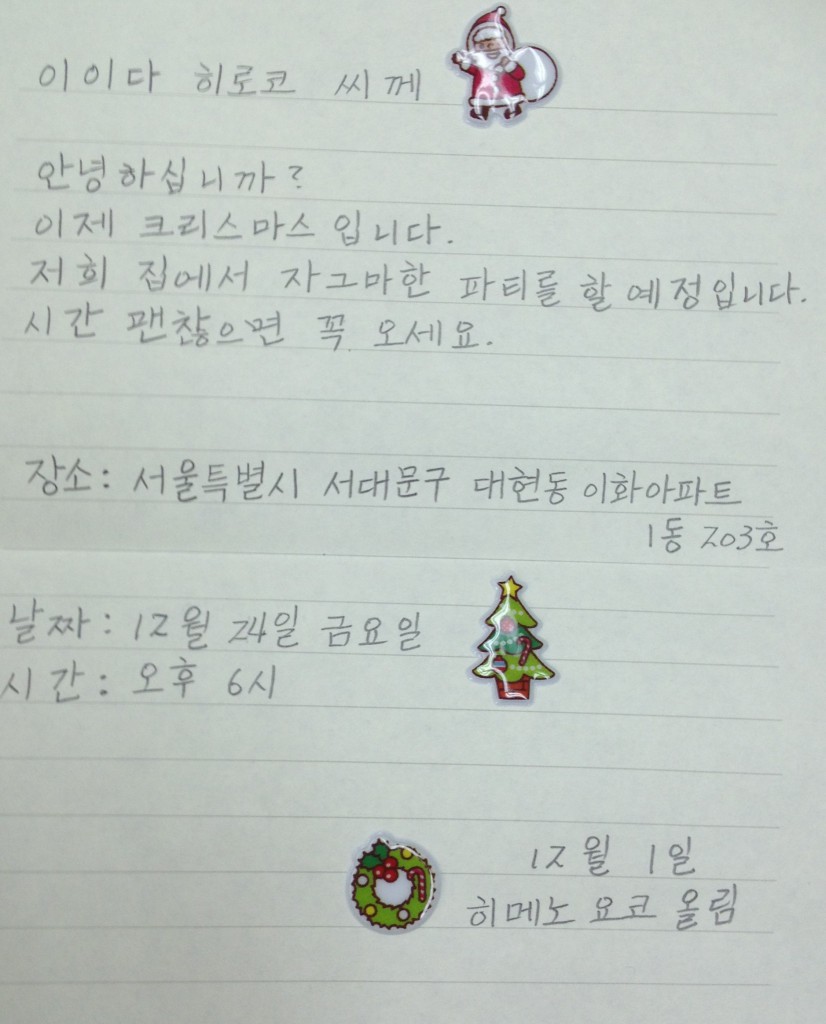 이이다 히로코 씨께
안녕하십니까?
이제 크리스마스입니다.
저희 집에서 자그마한 파티를 할 예정입니다.
시간 팬찮으면 꼭 오세요.
장소: 서울특별시 서대문구 대현동 이화아파트
1동 203호
날짜: 12월 24일 금요일
시간: 오후 6시
12월 1일
히메노 요코 올림